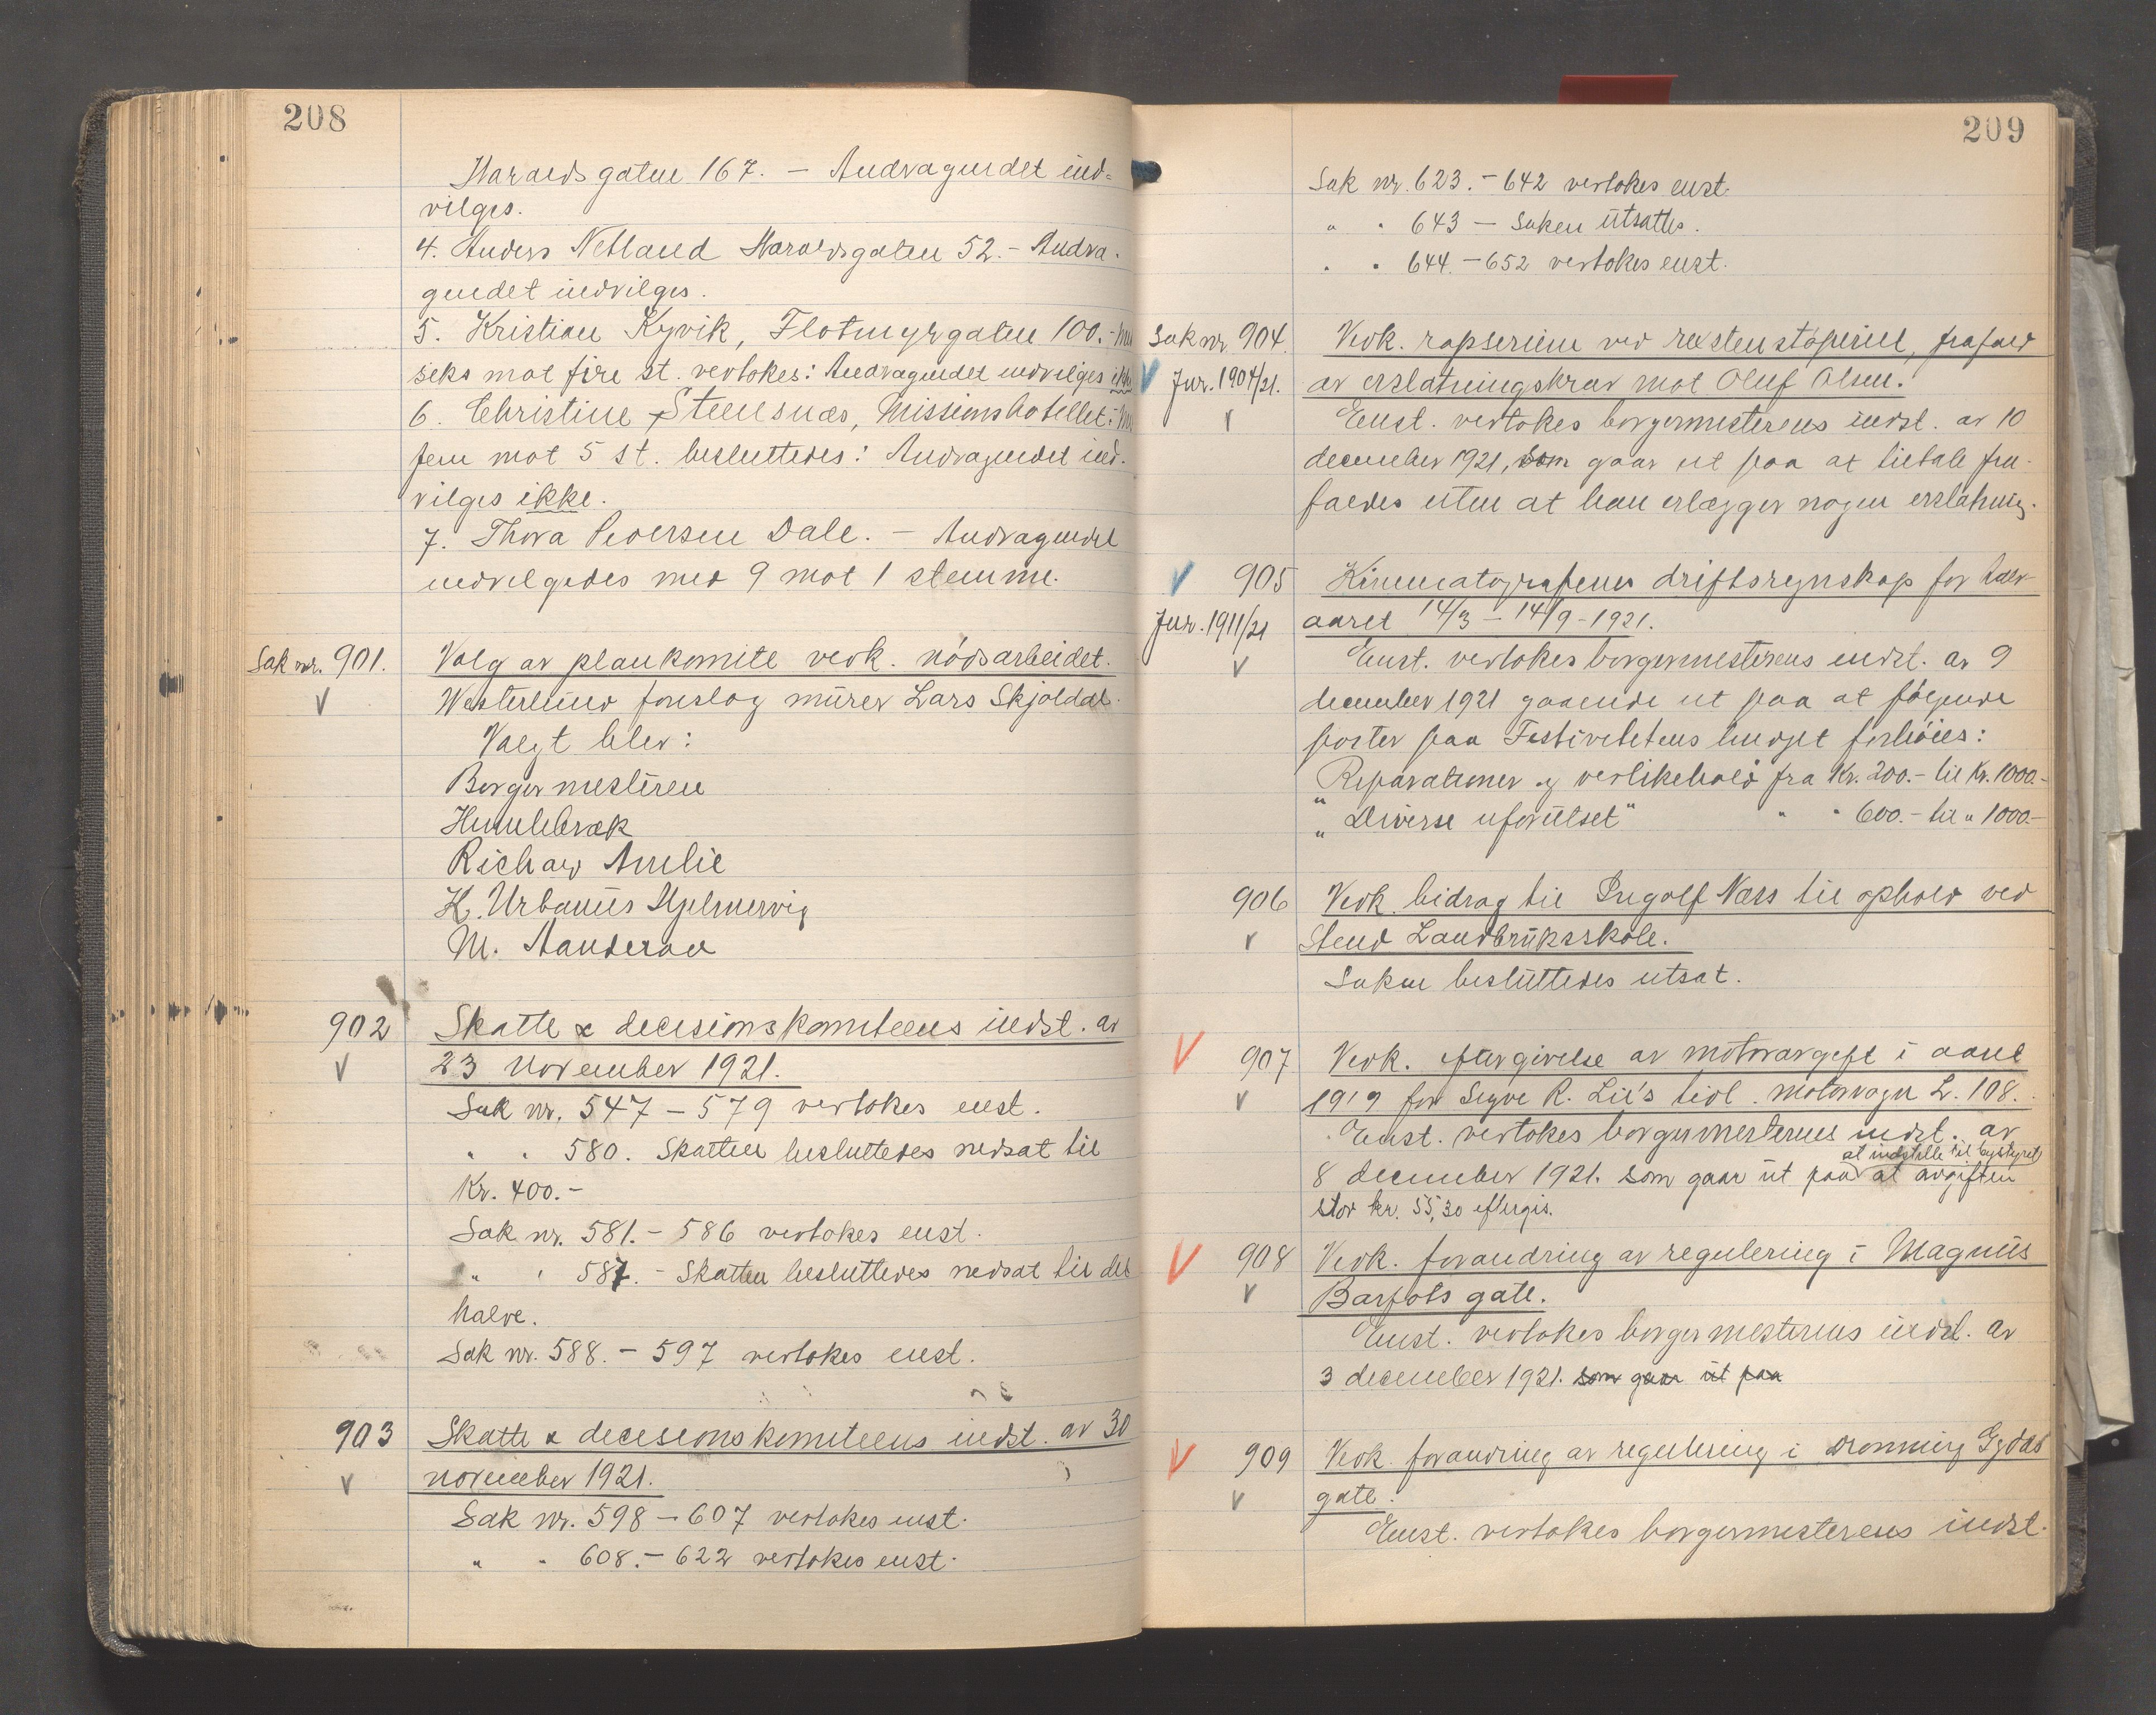 208
Haraldsgaten 167. – Andragendet ind-
vilges.
4. Anders Netland Haraldsgaten 52. – Andra-
gendet indvilges.
5. Kristian Kyvik, Flotmyrgaten 100. –
seks mot fire st. vedtokes: Andragendet indvilges ikke
6. Christine Steensnæs, Missionshotellet. –
fem mot 5 st. besluttedes: Andragendet ind-
vilges ikke.
7. Thora Pedersen Dale. – Andragendet
indvilgedes med 9 mot 1 stemme.
Sak nr. 901.
Valg av plankomite vedk. nödsarbeidet.
Westerlund foreslog murer Lars Skjoldal.
Valgt blev:
Borgermesteren
Humlebræk
Richard Amlie
H. Urbanus
M. Aanderaa
902
Skatte & decisionskomiteens indst. av
23 november 1921.
Sak nr. 547 – 579 vedtokes enst.
" " 580. Skatten besluttedes nedsat til
Kr. 400.–
Sak nr. 581. – 586 vedtokes enst.
" " 587. – Skatten besluttedes nedsat til det
halve.
Sak nr. 588. – 597 vedtokes enst.
903
Skatte & decisionskomiteens indst. av 30
november 1921.
Sak nr. 598 – 607 vedtokes enst.
" " 608. – 622 vedtokes enst.
209
Sak nr. 623. – 642 vedtokes enst.
" " 643 – Saken utsattes.
" " 644. – 652 vedtokes enst.
Sak nr. 904.
Jnr. 1904/21.
Vedk. ved frafald
av erstatningskrav mot Oluf Olsen.
Enst. vedtokes borgermesterens indst. av 10
december 1921, som gaar ut paa at tiltale fra-
faldes uten at han erlægger nogen erstatning.
905
Jnr. 1911/21
Kinematografenes driftsregnskap for halv-
aaret 14/3 – 14/9 – 1921.
Enst. vedtokes borgermesterens indst. av 9
december 1921 gaaende ut paa at følgende
poster paa Festivitetens budget forhöies:
"Reparationer og vedlikehold fra Kr. 200.– til Kr. 1000.–
"Diverse uforutset" " " 600.– til " 1000.–
906
Vedk. bidrag til Ingolf Næs til ophold ved
Stend Landbruksskole.
Saken besluttedes utsat.
907
Vedk. eftergivelse av motoravgift i aaret
1919 for Sigve R. Lie's tidl. motorvogn L. 108.
Enst. vedtokes borgermesterens indst. av
at indstille til bystyret
8 december 1921. som gaar ut paa at avgiften
stor kr. 55,30 eftergis.
908
Vedk. forandring av regulering i Magnus
Barfots gate.
Enst. vedtokes borgermesterens indst. av
3 december 1921. som gaar ut paa
909
Vedk. forandring av regulering i Dronning Gydas
gate.
Enst. vedtokes borgermesterens indst.